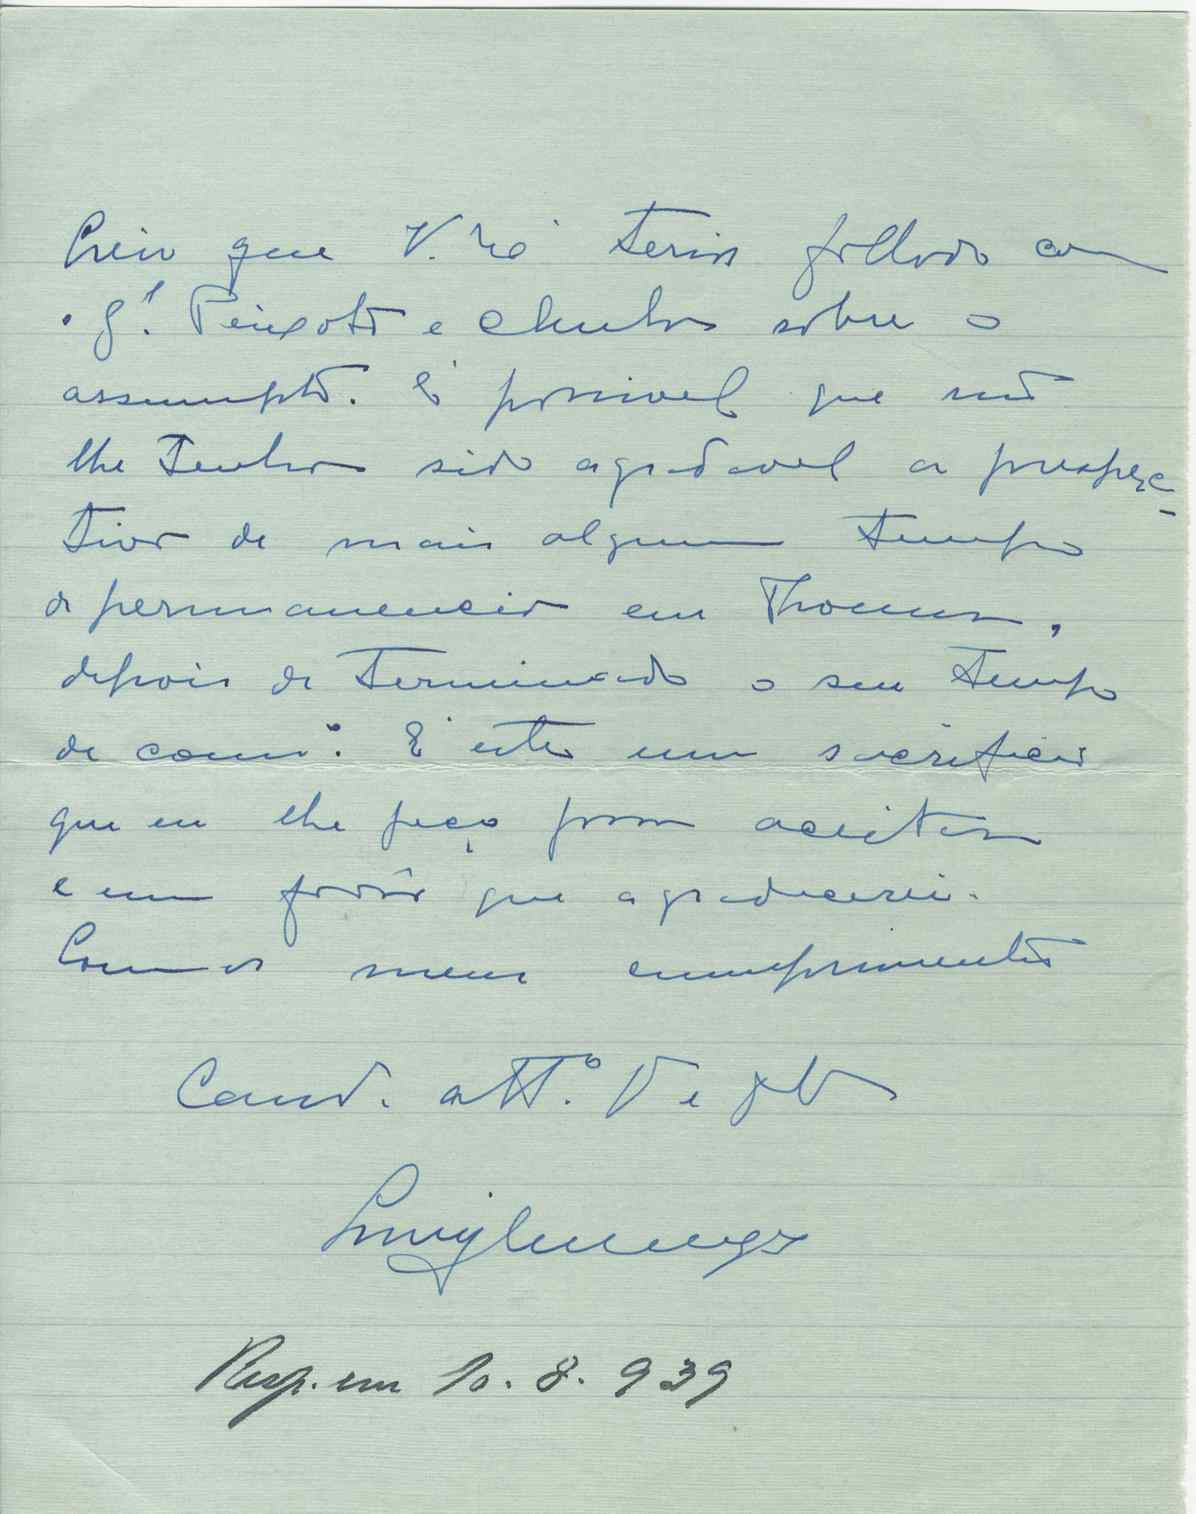 Creio que V. Exª teria fallado com
o Gl. Peixoto e Cunha sobre o
assumpto. É possivel que não
lhe tenha sido agradavel a prespec-
tiva de mais algum tempo
de permanencia em Thomar,
depois de terminado o seu tempo
de comº. É este um sacrificio
que eu lhe peço para aceitar
e um favôr que agradecerei.
Com os meus cumprimentos
Camd. attº. V e
Resp. em 10. 8. 939